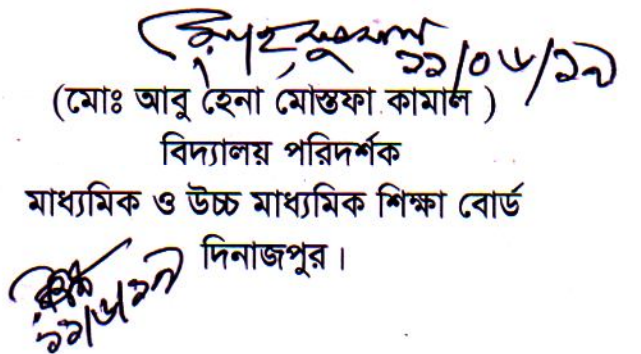 ১১/০৬/১৭
(মোঃ আবু হেনা মোস্তফা কামাল )
বিদ্যালয় পরিদর্শক
মাধ্যমিক ও উচ্চ মাধ্যমিক শিক্ষা বোর্ড
দিনাজপুর।
১১/৬/১৭